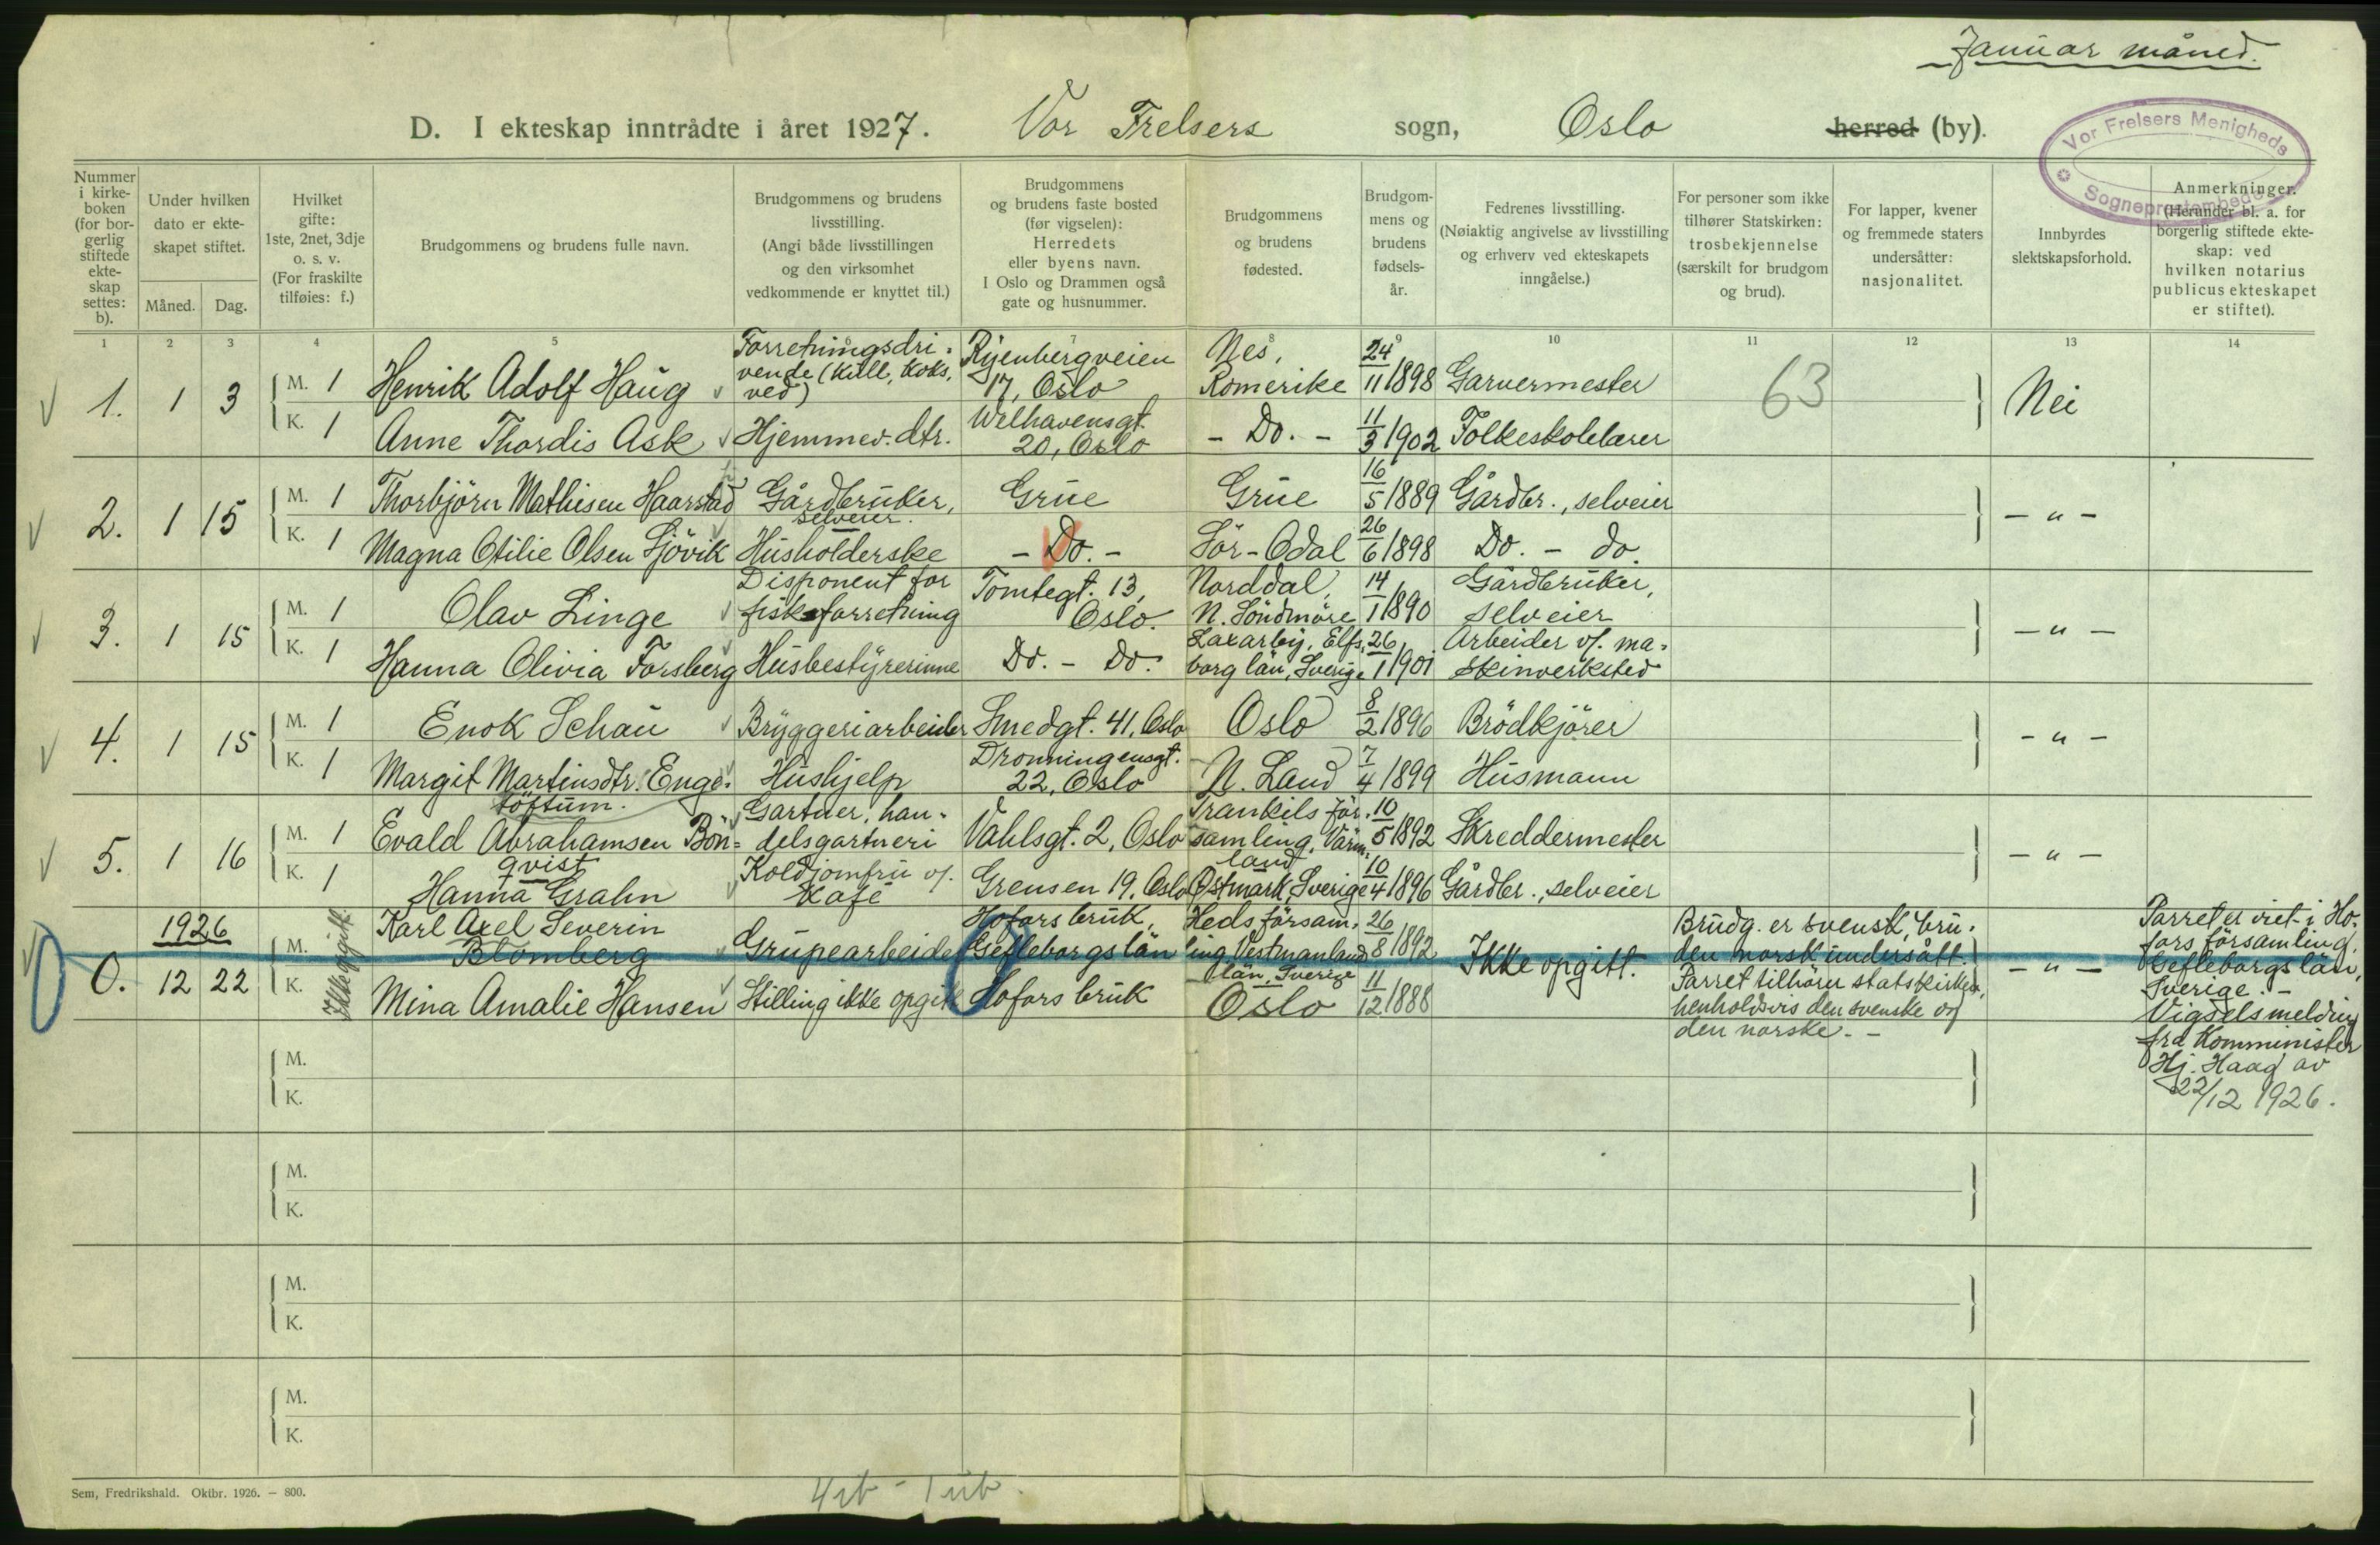 Januar måned.
D. I ekteskap inntrådte i året 1927. Vor Frelsers sogn, Oslo herred (by).
Vor Frelsers Menigheds
Sogneprestembede
Nummer
i kirke-
boken
(for bor-
gerlig
stiftede
ekte-
skap
settes:
b).
Under hvilken
dato er ekte-
skapet stiftet.
Måned. Dag.
Hvilket
gifte:
1ste, 2net, 3dje
o. s. v.
(For fraskilte
tilføies: f.)
Brudgommens og brudens fulle navn.
Brudgommens og brudens
livsstilling.
(Angi både livsstillingen
og den virksomhet
vedkommende er knyttet til.)
Brudgommens
og brudens faste bosted
(før vigselen):
Herredets
eller byens navn.
I Oslo og Drammen også
gate og husnummer.
Brudgommens
og brudens
fødested.
Brudgom-
mens og
brudens
fødsels-
år.
Fedrenes livsstilling.
(Nøiaktig angivelse av livsstilling
og erhverv ved ekteskapets
inngåelse.)
For personer som ikke
tilhører Statskirken:
trosbekjennelse
(særskilt for brudgom
og brud).
For lapper, kvener
og fremmede staters
undersåtter:
nasjonalitet.
Innbyrdes
slektskapsforhold.
Anmerkninger.
(Herunder bl. a. for
borgerlig stiftede ekte-
skap: ved
hvilken notarius
publicus ekteskapet
er stiftet).
1 2 3 4 5 6 7 8 9 10 11 12 13 14
1. 1 3
M. 1 Henrik Adolf Haug
Forretningsdri-
vende (kull, koks,
ved)
Ryenbergveien
17, Oslo
Nes,
Romerike
24/11 1898
Garvermester
63
Nei
K. 1 Anne Thordis Ask
Hjemmev. dtr.
Welhavensgt.
20, Oslo
- Do. -
11/3 1902
Folkeskolelærer
2. 1 15
M. 1 Thorbjörn Mathisen Haarstad
Gårdbruker,
selveier.
Grue
Grue
16/5 1889
Gårdbr., selveier
- " -
K. 1 Magna Otilie Olsen Sjövik
Husholderske
- Do. -
Sör-Odal
26/6 1898
Do. - do.
3. 1 15
M. 1 Olav Linge
Disponent for
fiskeforretning
Tomtegt. 13,
Oslo.
Norddal,
N. Söndmöre
14/1 1890
Gårdbruker,
selveier
- " -
K. 1 Hanna Olivia Forsberg
Husbestyrerinne
Do. - Do.
Laxarby, Elfs-
borg län, Sverige
26/1 1901
Arbeider v/. ma-
skinverksted
4. 1 15
M. 1 Enok Schau
Bryggeriarbeider
Smedgt. 41, Oslo
Oslo
8/2 1896
Brödkjörer
- " -
K. 1 Margit Martinsdtr. Enge-
töftum.
Hushjelp
Dronningensgt.
22, Oslo
N. Land
7/4 1899
Husmann
5. 1 16
M. 1 Evald Abrahamsen Bön-
qvist
Gartner, han-
delsgartneri
Vahlsgt. 2, Oslo
Trankils för-
samling, Värm-
land
10/5 1892
Skreddermester
- " -
K. 1 Hanna Grahn
Koldjomfru v/.
Kafé
Grensen 19, Oslo
Östmark, Sverige
10/4 1896
Gårdbr., selveier
1926
0. 12 22
Ikke opgitt.
M. Karl Axel Severin
Blomberg
Grupearbeider
Hofors bruk,
Gefleborgs län
Heds försam-
ling, Vestmanlands
län, Sverige
26/8 1892
Ikke opgitt.
Brudg. er svensk, bru-
den norsk undersått.
Parret tilhörer statskirken,
henholdsvis den svenske og
den norske. -
- " -
Parret er viet i Ho-
fors församling,
Gefleborgs län,
Sverige. -
Vigselsmelding
fra Komminister
Hj. Haag av
22/12 1926.
K. Mina Amalie Hansen
Stilling ikke opgitt
Hofors bruk
Oslo
11/12 1888
M.
K.
M.
K.
M.
K.
M.
K.
Sem, Fredrikshald. Oktbr. 1926. — 800.